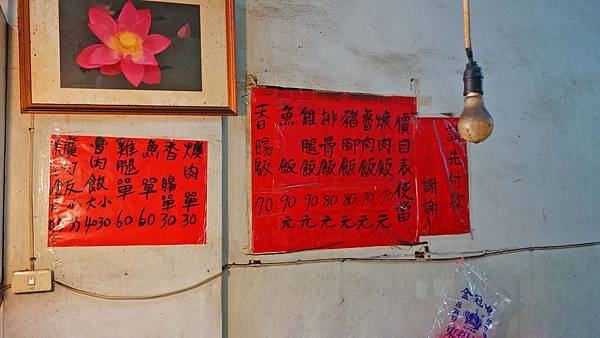 請先付款
謝謝!
價目表便當
爌肉飯 70元
魯肉飯 70元
豬腳飯 80元
排骨飯 80元
雞腿飯 90元
魚飯 90元
香腸飯 70
爌肉單 30
香腸單 30
魚單 60
雞腿單 60
魯肉飯大小 4030
金冠